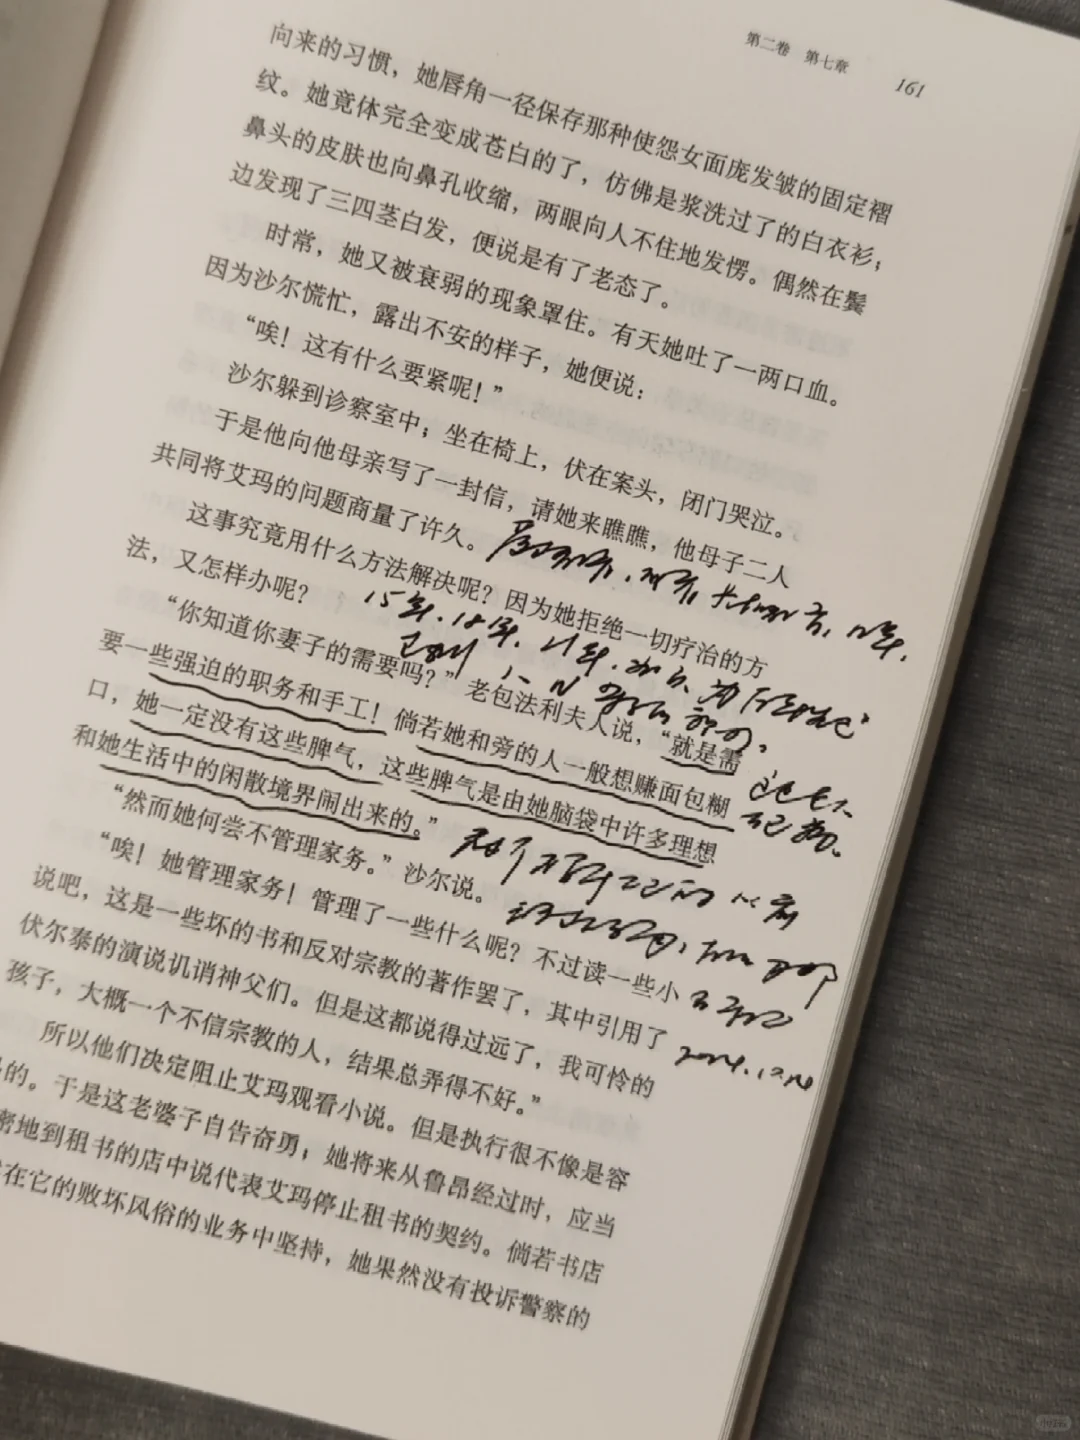 第二卷 第七章 161
向来的习惯，她唇角一径保存那种使怨女面庞发皱的固定褶
纹。她竟体完全变成苍白的了，仿佛是浆洗过了的白衣衫；
鼻头的皮肤也向鼻孔收缩，两眼向人不住地发愣。偶然在鬓
边发现了三四茎白发，便说是有了老态了。
时常，她又被衰弱的现象罩住。有天她吐了一两口血。
因为沙尔慌忙，露出不安的样子，她便说：
“唉！这有什么要紧呢！”
沙尔躲到诊察室中；坐在椅上，伏在案头，闭门哭泣。
于是他向他母亲写了一封信，请她来瞧瞧，他母子二人
共同将艾玛的问题商量了许久。
这事究竟用什么方法解决呢？因为她拒绝一切疗治的方
法，又怎样办呢？
15年.18年.
“你知道你妻子的需要吗？”老包法利夫人说，“就是需
要一些强迫的职务和手工！倘若她和旁的人一般想赚面包糊
口，她一定没有这些脾气，这些脾气是由她脑袋中许多理想
和她生活中的闲散境界闹出来的。”
“然而她何尝不管理家务。”沙尔说。
“唉！她管理家务！管理了一些什么呢？不过读一些小
说吧，这是一些坏的书和反对宗教的著作罢了，其中引用了
伏尔泰的演说讥诮神父们。但是这都说得过远了，我可怜的
孩子，大概一个不信宗教的人，结果总弄得不好。”
所以他们决定阻止艾玛观看小说。但是执行很不像是容
的。于是这老婆子自告奋勇；她将来从鲁昂经过时，应当
密地到租书的店中说代表艾玛停止租书的契约。倘若书店
在它的败坏风俗的业务中坚持，她果然没有投诉警察的